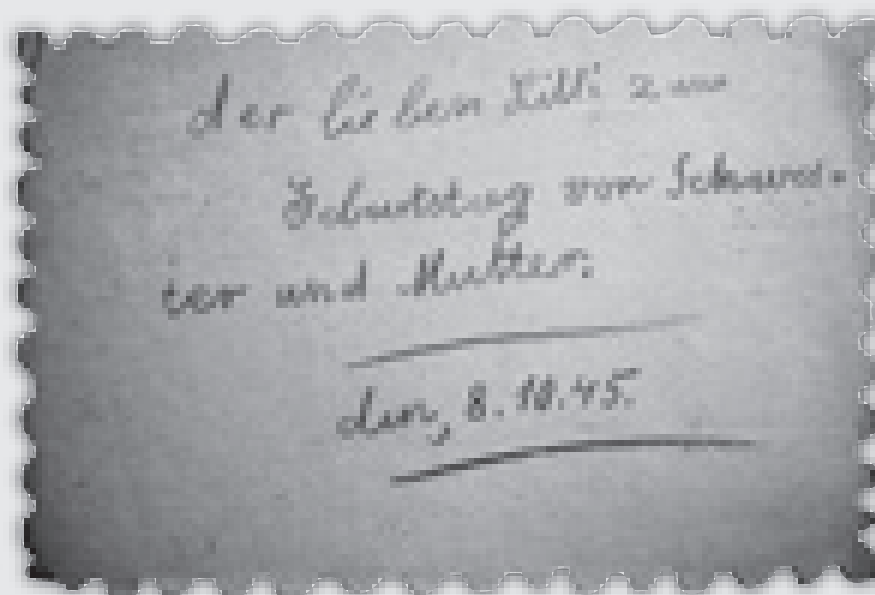 der lieben Lilli zum
Geburtstag von Schwes-
ter und Mutter.
den, 8.10.45.